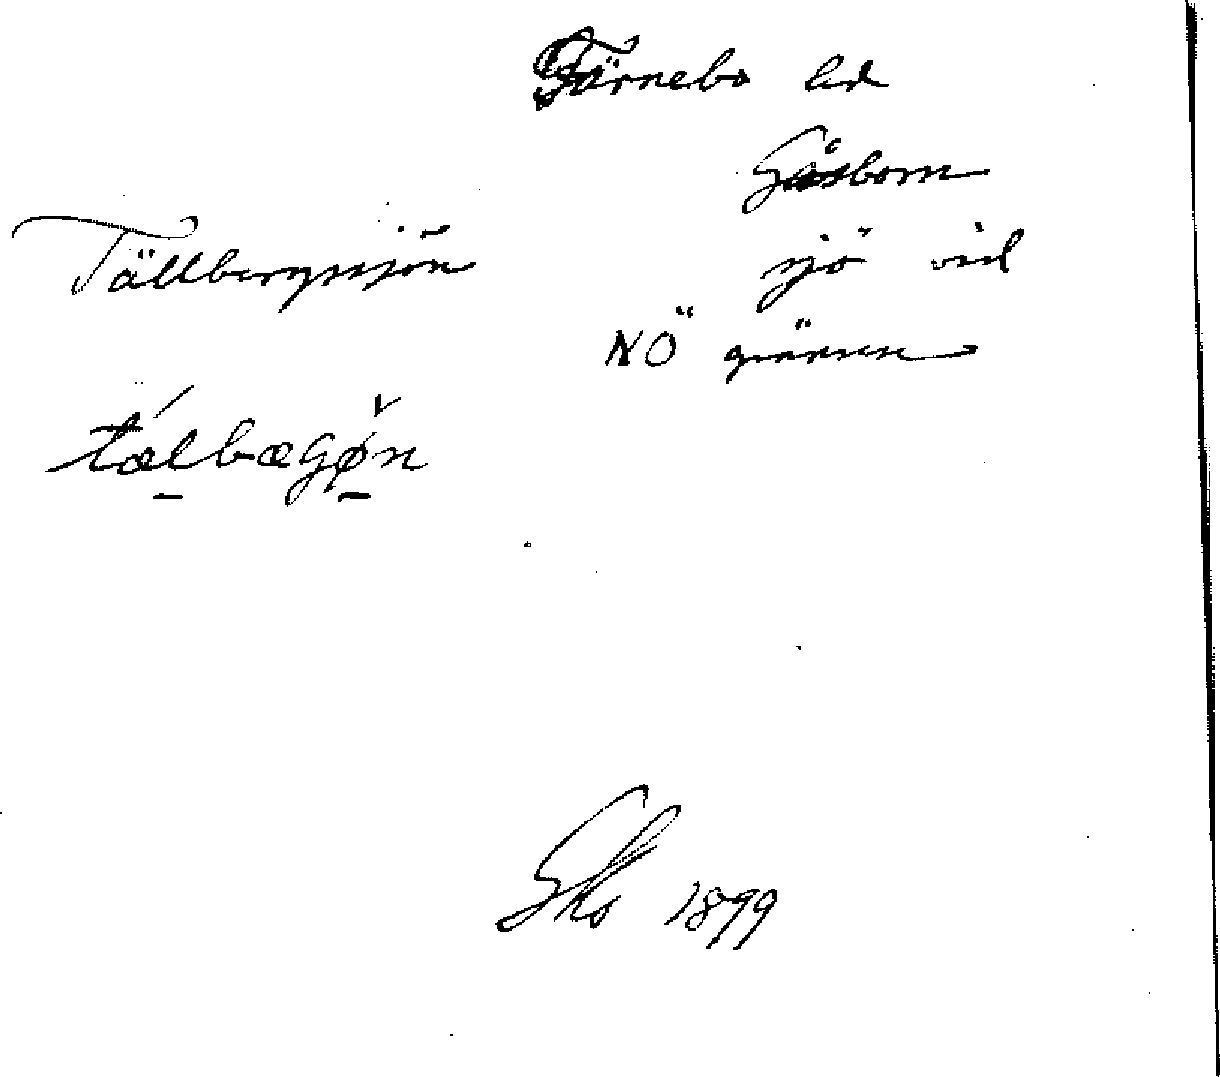 Färnebo hd
Gåsborn
Tällbergssjön sjö vid
NÖ gränsen
tælbægøn
Sks 1899